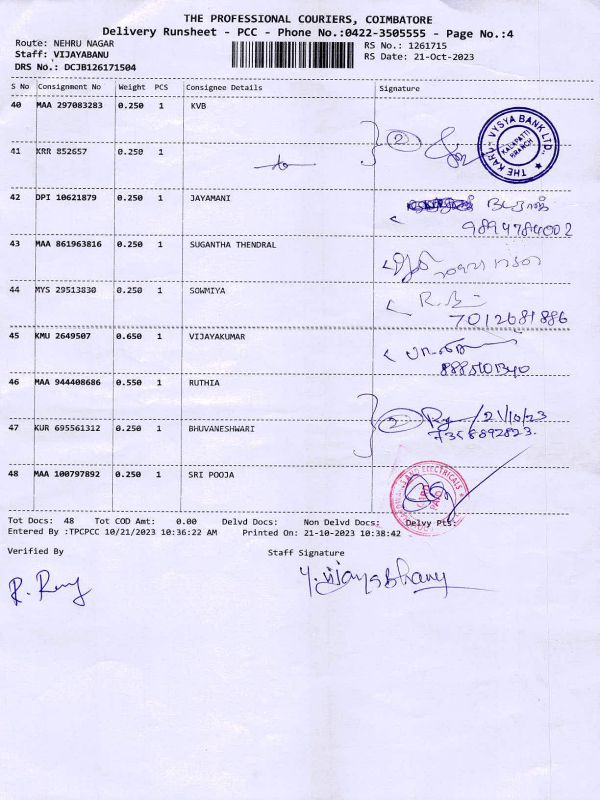 THE PROFESSIONAL COURIERS, COIMBATORE
Delivery Runsheet - PCC - Phone No.:0422-3505555 - Page No.:4
Route: NEHRU NAGAR RS No.: 1261715
Staff: VIJAYABANU RS Date: 21-Oct-2023
DRS No.: DCJB126171504
S No Consignment No Weight PCS Consignee Details Signature
40 MAA 297083283 0.250 1 KVB
2
THE KARUR VYSYA BANK LTD.,
KALAPATTI
BRANCH
41 KRR 852657 0.250 1
42 DPI 10621879 0.250 1 JAYAMANI
9894784002
43 MAA 861963816 0.250 1 SUGANTHA THENDRAL
44 MYS 29513830 0.250 1 SOWMIYA
7012681886
45 KMU 2649507 0.650 1 VIJAYAKUMAR
46 MAA 944408686 0.550 1 RUTHIA
2 21/10/23
47 KUR 695561312 0.250 1 BHUVANESHWARI
7358892823.
48 MAA 100797892 0.250 1 SRI POOJA
AND ELECTRICALS
Tot Docs: 48 Tot COD Amt: 0.00 Delvd Docs: Non Delvd Docs: Delvy Pts:
Entered By :TPCPCC 10/21/2023 10:36:22 AM Printed On: 21-10-2023 10:38:42
Verified By Staff Signature
Y. Vijayabhanu